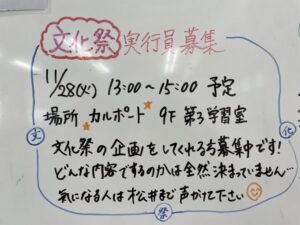 文化祭 実行員募集
11/28(火) 13:00〜15:00 予定
場所 カルポート 9F 第3学習室
文化祭の企画をしてくれる方募集中です!
どんな内容でするのかは全然決まっていません…
気になる人は松井まで声がけて下さい
文
化
祭